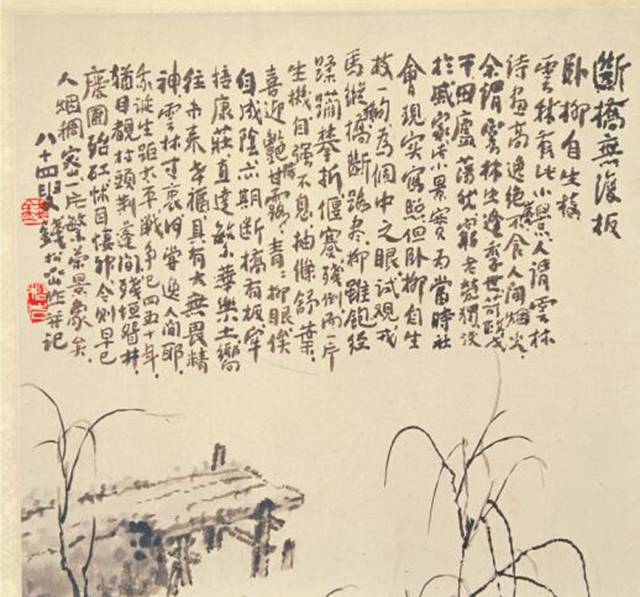 斷橋無復板
卧柳自生枝
雲林有此小景人謂雲林
詩畫高逸絕不食人間烟火
余謂雲林生逢季世苛政戈
干田廬蕩然窮老煢獨沒
於戚家此小景實為當時社
會現实寫照但卧柳自生
枝一句為個中之眼試觀戎
馬縱橫橋斷路盡柳雖飽經
蹂躪摧折偃蹇殘倒而一片
生機自强不息抽條舒葉
喜迎艷陽甘露青青柳眼俟
自成陰亦期斷橋有板牢
康莊直達繁華樂土嚮
往未來幸福具有大無畏精
神雲林寸衷何嘗逸人間耶
余誕生距太平戰爭已四五十年
猶目覩村頭荆蓬间殘垣眢井
廢圃怵目憤邪今则早已
人烟稠家家一片繁榮景象矣
八十四叟錢松喦作并記